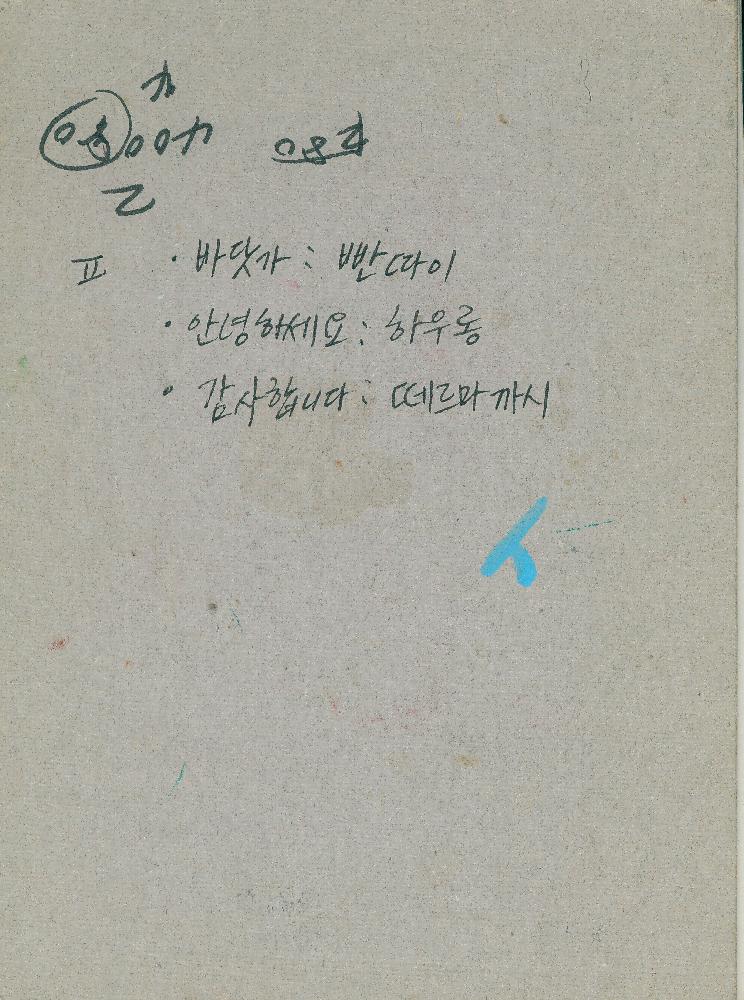 ㅍ · 바닷가 : 빤따이
· 안녕하세요 : 하우롱
· 감사합니다 : 떼르마까시